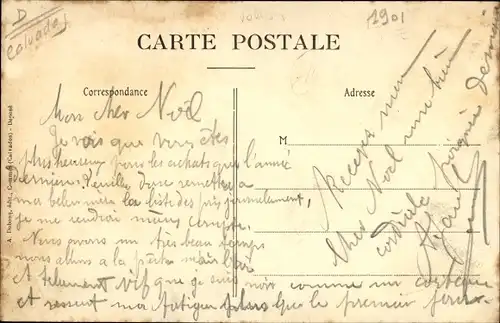 D
Calvados
1901
CARTE POSTALE
Correspondance
Adresse
M
A. Dubosq, édit., (Calvados) - Déposé
Mon cher Noël
Je vois que vous êtes
plus heureux pour les achats que l'année
dernière. Veuillez donc remettre à
ma la liste des prix
je me rendrai mieux compte.
Nous avons un très beau temps
nous allons à la pêche mais l'air
est tellement vif que je suis noir, comme un
et ressent ma fatigue plus que le premier jour.
Recevez mon
cher Noël une bien
cordiale poignée de main